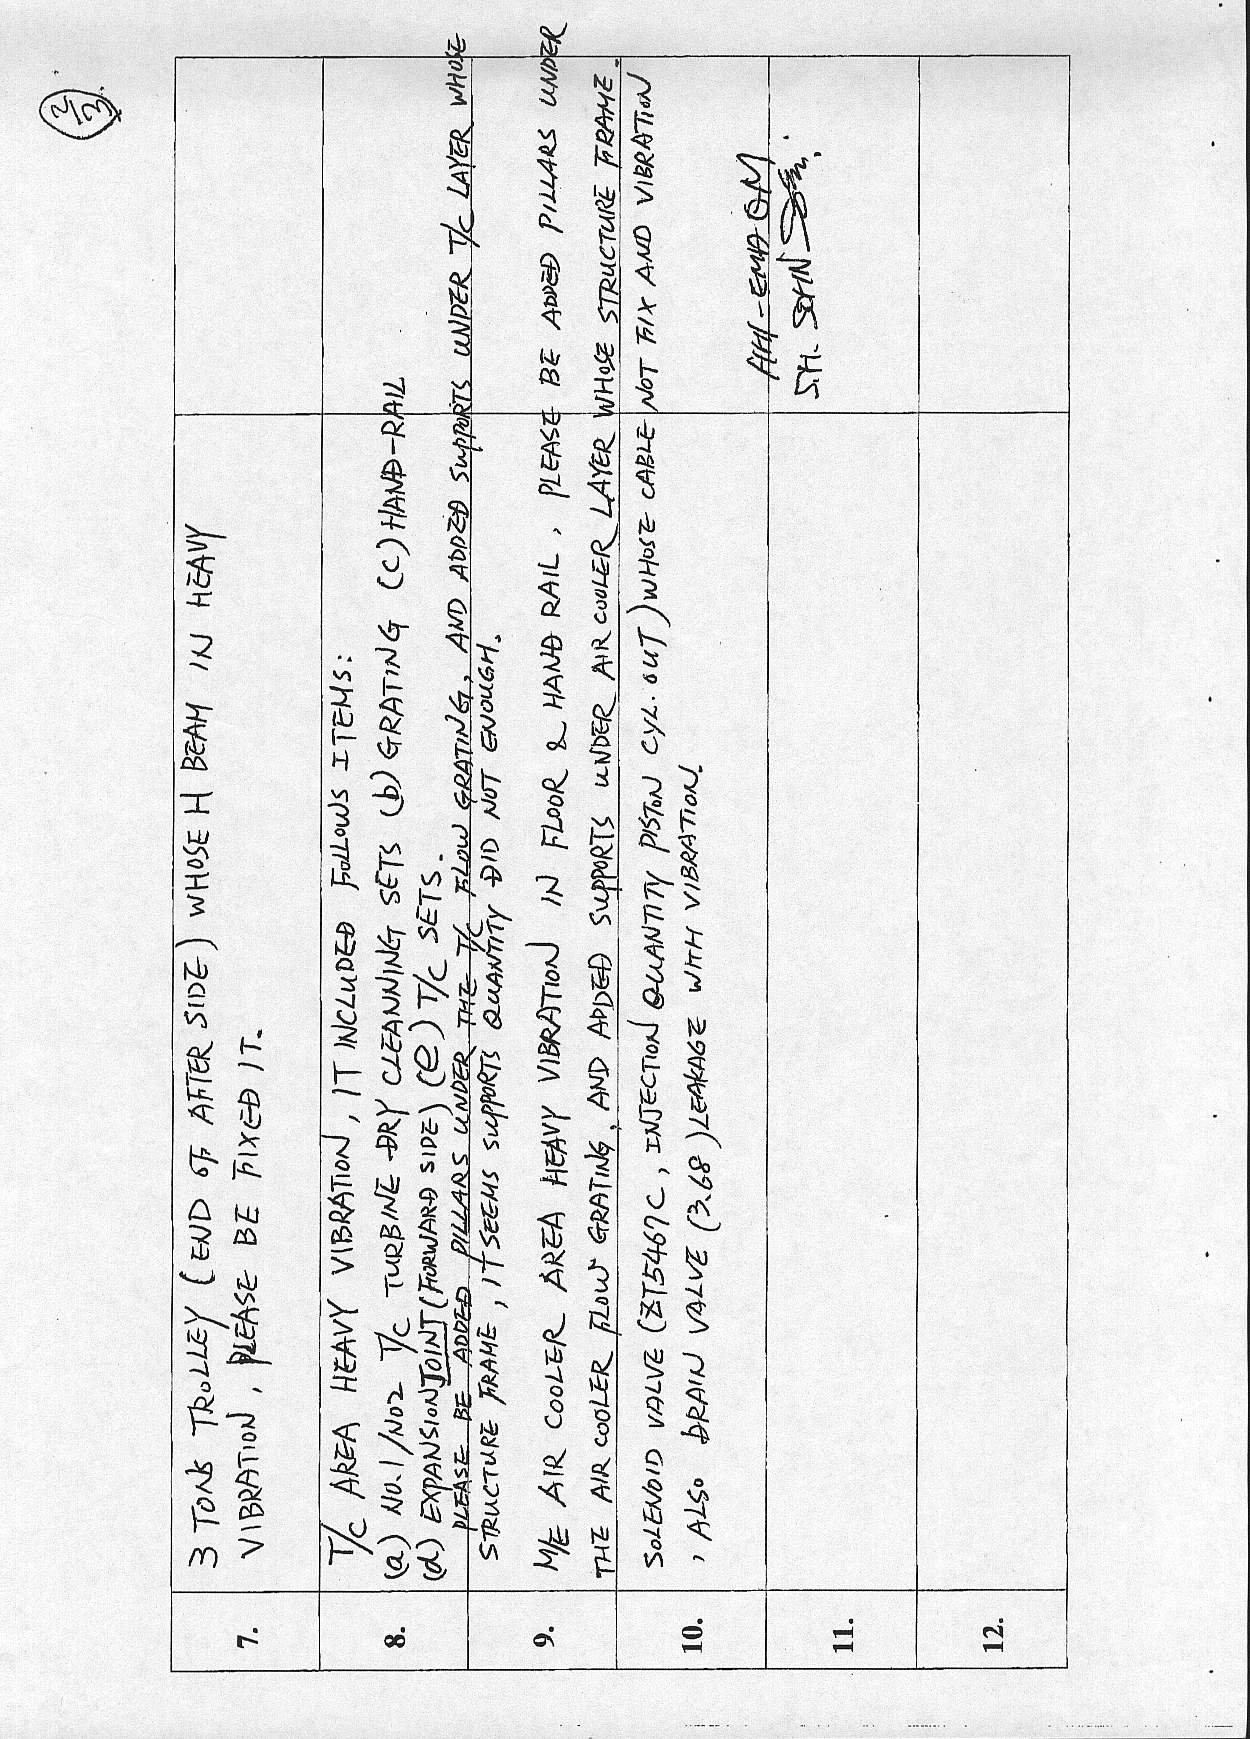 2/3
7.
3 TONS TROLLEY (END OF AFTER SIDE) WHOSE H BEAM IN HEAVY
VIBRATION, PLEASE BE FIXED IT.
8.
T/C AREA HEAVY VIBRATION, IT INCLUDED FOLLOWS ITEMS:
(a) NO.1/NO2 T/C TURBINE DRY CLEANNING SETS (b) GRATING (C) HAND-RAIL
(d) EXPANSION JOINT (FORWARD SIDE) (e) T/C SETS.
PLEASE BE ADDED PILLARS UNDER THE T/C FLOW GRATING, AND ADDED SUPPORTS UNDER T/C LAYER WHOSE
STRUCTURE FRAME, IT SEEMS SUPPORTS QUANTITY DID NOT ENOUGH.
9.
M/E AIR COOLER AREA HEAVY VIBRATION IN FLOOR & HAND RAIL, PLEASE BE ADDED PILLARS UNDER
THE AIR COOLER FLOW GRATING, AND ADDED SUPPORTS UNDER AIR COOLER LAYER WHOSE STRUCTURE FRAME.
10.
SOLENOID VALVE (ZT5467C, INJECTION QUANTITY PISTON CYL. OUT) WHOSE CABLE NOT FIX AND VIBRATION
, ALSO DRAIN VALVE (3.68) LEAKAGE WITH VIBRATION.
11.
HHI-EMA QM
S.H. SOHN
12.